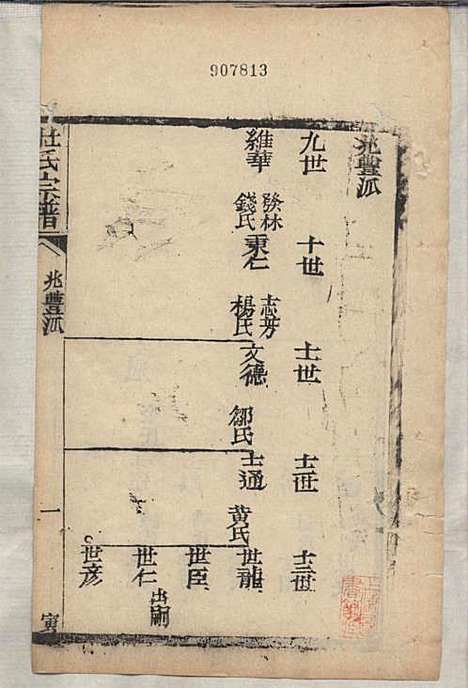 907813
兆豐派
九世
維華
發林
錢氏
十世
東仁
志芳
楊氏
十一世
文德
鄒氏
十二世
士通
黄氏
十三世
世龍
世臣
世仁
出嗣
世彦
杜氏宗譜
兆豐派
一
寅